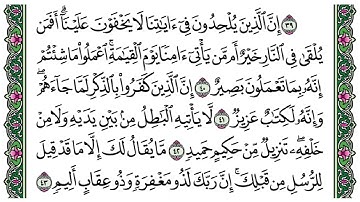 ٣٩ إِنَّ ٱلَّذِينَ يُلْحِدُونَ فِىٓ ءَايَٰتِنَا لَا يَخْفَوْنَ عَلَيْنَآ ۗ أَفَمَن
يُلْقَىٰ فِى ٱلنَّارِ خَيْرٌ أَم مَّن يَأْتِىٓ ءَامِنًا يَوْمَ ٱلْقِيَٰمَةِ ۚ ٱعْمَلُوا۟ مَا شِئْتُمْ
إِنَّهُۥ بِمَا تَعْمَلُونَ بَصِيرٌ ٤٠ إِنَّ ٱلَّذِينَ كَفَرُوا۟ بِٱلذِّكْرِ لَمَّا جَآءَهُمْ ۖ
وَإِنَّهُۥ لَكِتَٰبٌ عَزِيزٌ ٤١ لَّا يَأْتِيهِ ٱلْبَٰطِلُ مِنۢ بَيْنِ يَدَيْهِ وَلَا مِنْ
خَلْفِهِۦ ۖ تَنزِيلٌ مِّنْ حَكِيمٍ حَمِيدٍ ٤٢ مَّا يُقَالُ لَكَ إِلَّا مَا قَدْ قِيلَ
لِلرُّسُلِ مِن قَبْلِكَ ۚ إِنَّ رَبَّكَ لَذُو مَغْفِرَةٍ وَذُو عِقَابٍ أَلِيمٍ ٤٣